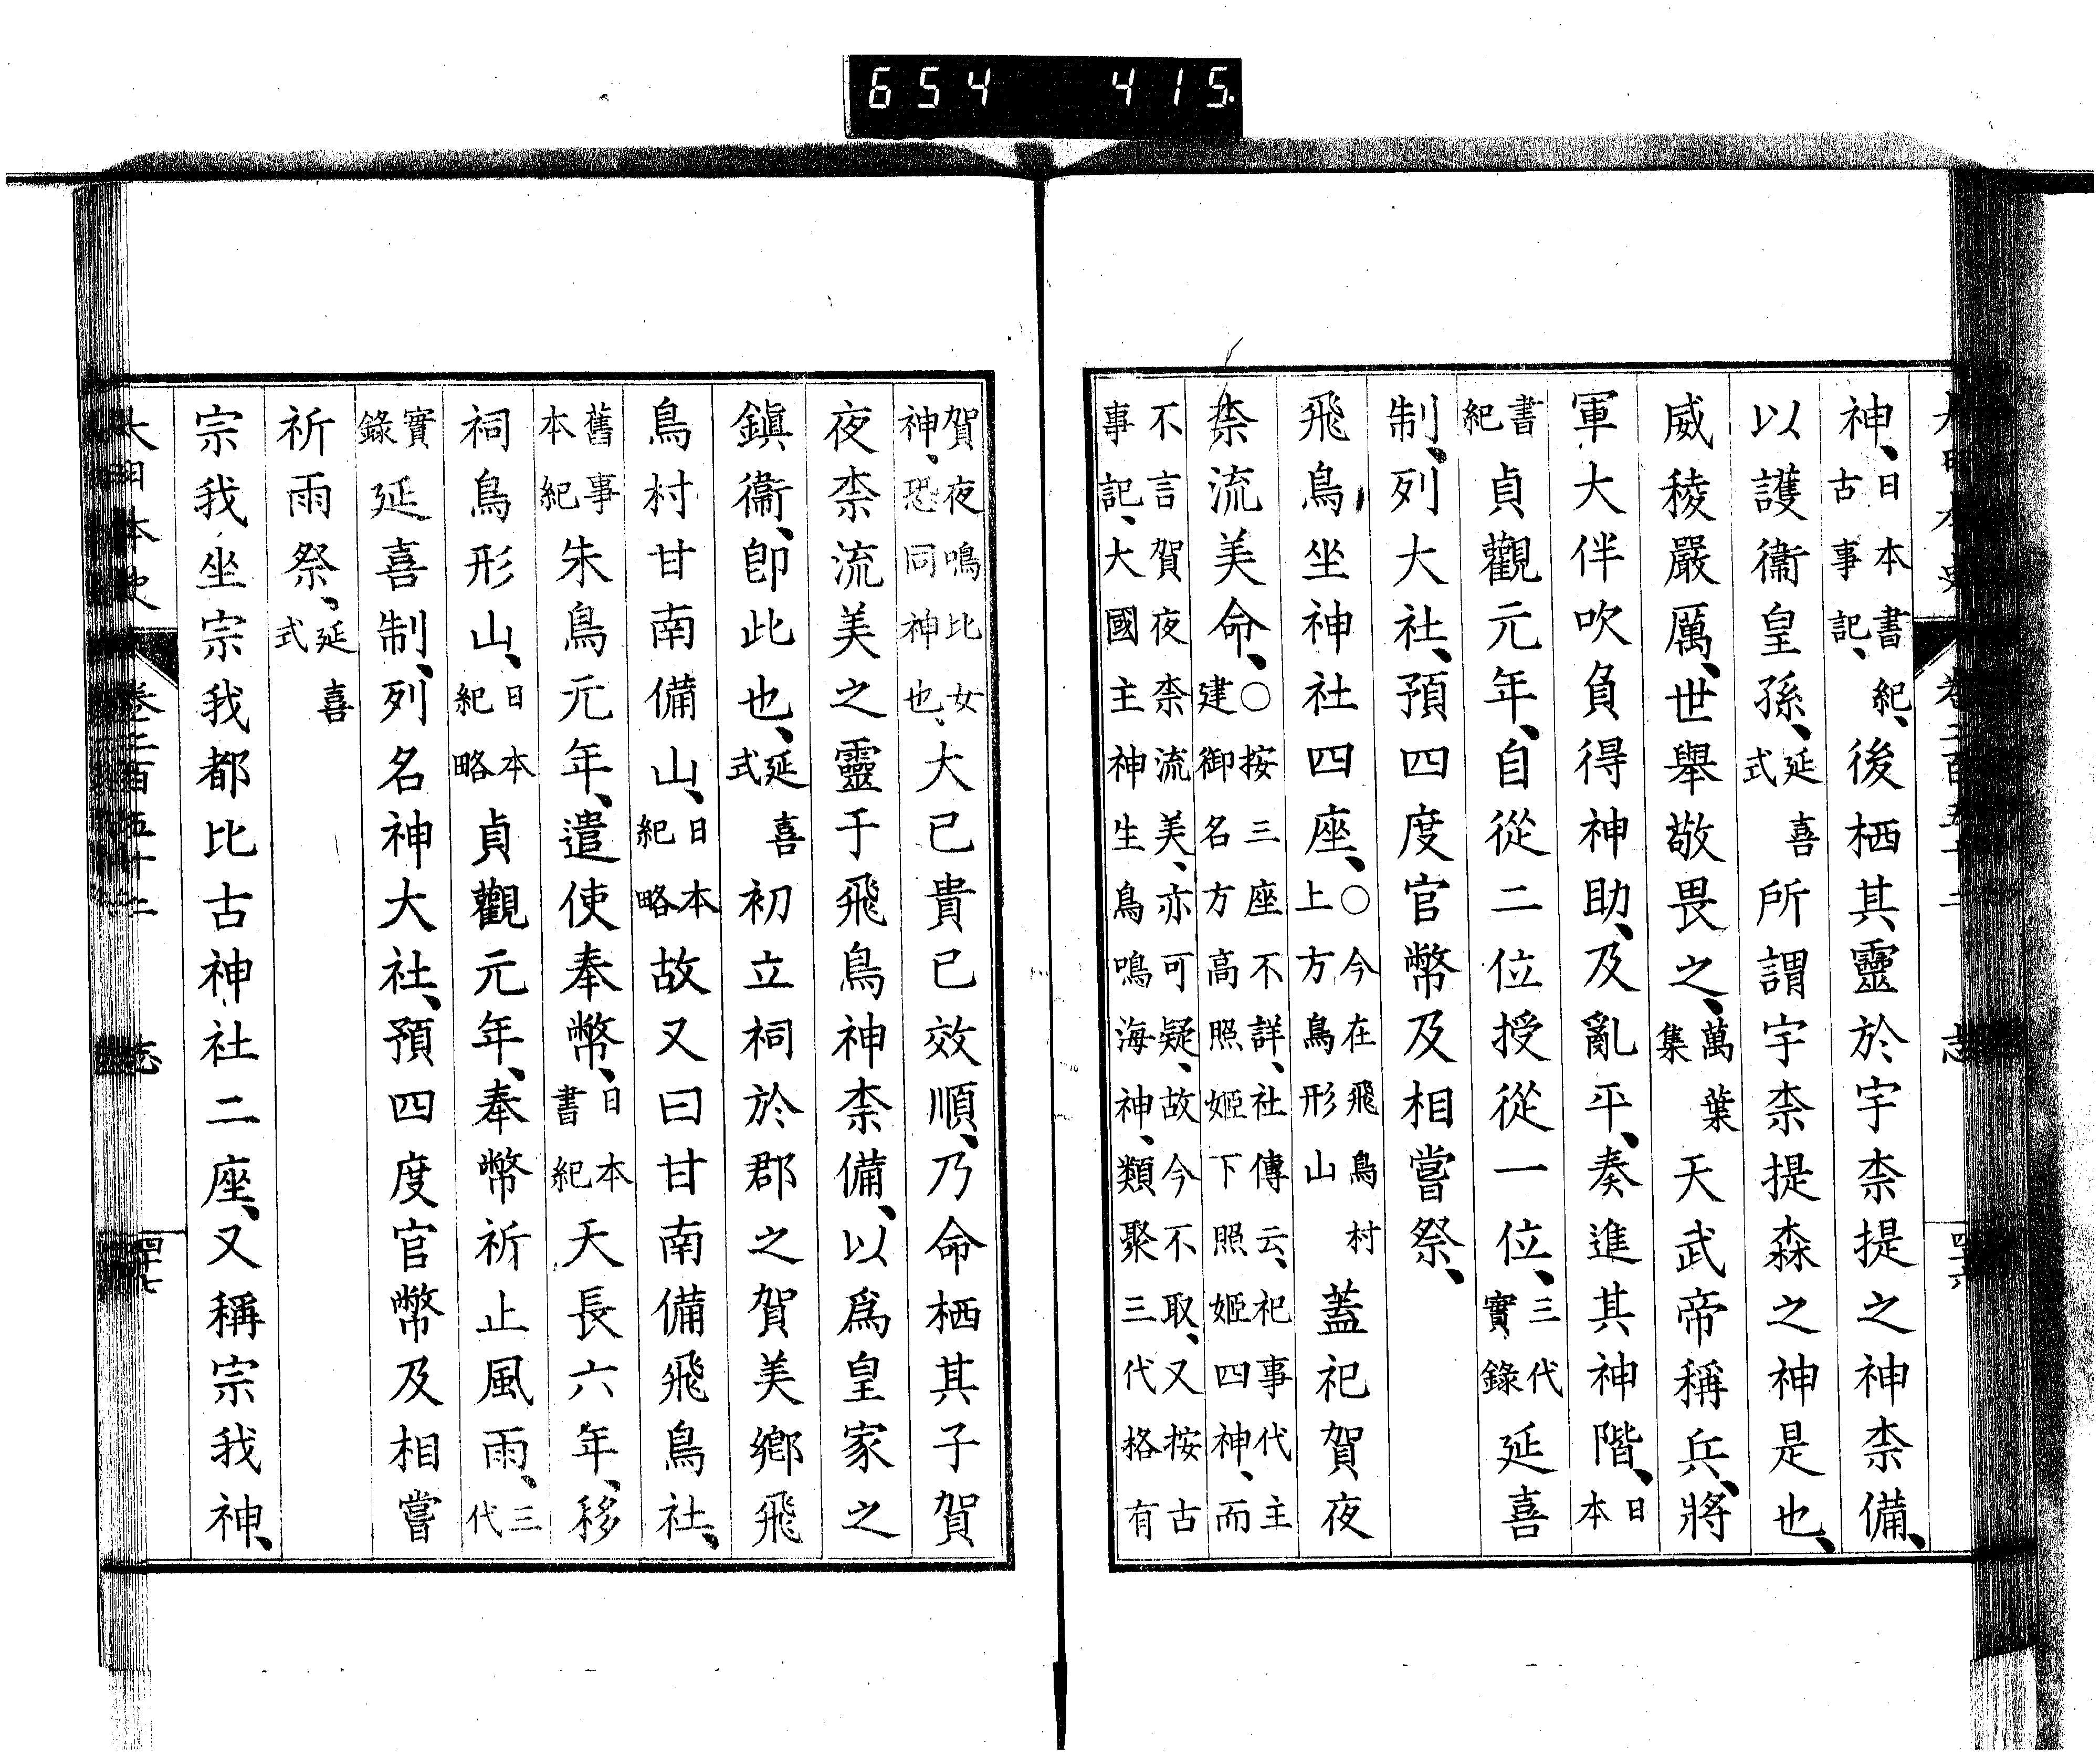 大日本史 卷二百五十二 志 四十六
神、日本書紀、古事記、後栖其靈於宇柰提之神柰備、
以護衞皇孫、延喜式所謂宇柰提森之神是也、
威稜嚴厲、世舉敬畏之、萬葉集天武帝稱兵、將
軍大伴吹負得神助、及亂平、奏進其神階、日本
書紀貞觀元年、自從二位授從一位、三代實錄延喜
制、列大社、預四度官幣及相嘗祭、
飛鳥坐神社四座、○今在飛鳥村上方鳥形山蓋祀賀夜
柰流美命、○按三座不詳、社傳云、祀事代主建御名方高照姬下照姬四神、而
不言賀夜柰流美、亦可疑、故今不取、又按古事記、大國主神生鳥鳴海神、類聚三代格有
賀夜鳴比女神、恐同神也、大已貴已效順、乃命栖其子賀
夜柰流美之靈于飛鳥神柰備、以爲皇家之
鎭衞、卽此也、延喜式初立祠於郡之賀美鄉飛
鳥村甘南備山、日本紀略故又曰甘南備飛鳥社、
舊事本紀朱鳥元年、遣使奉幣、日本書紀天長六年、移
祠鳥形山、日本紀略貞觀元年、奉幣祈止風雨、三代
實錄延喜制、列名神大社、預四度官幣及相嘗
祈雨祭、延喜式
宗我坐宗我都比古神社二座、又稱宗我神、
大日本史 卷二百五十二 志 四十七
654 415